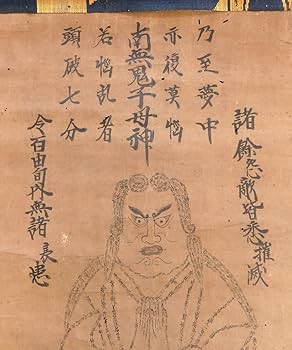 諸餘怨敵皆悉摧滅
乃至夢中
亦復莫惱
南無鬼子母神
若惱乱者
頭破七分
令百由旬内無諸衰患